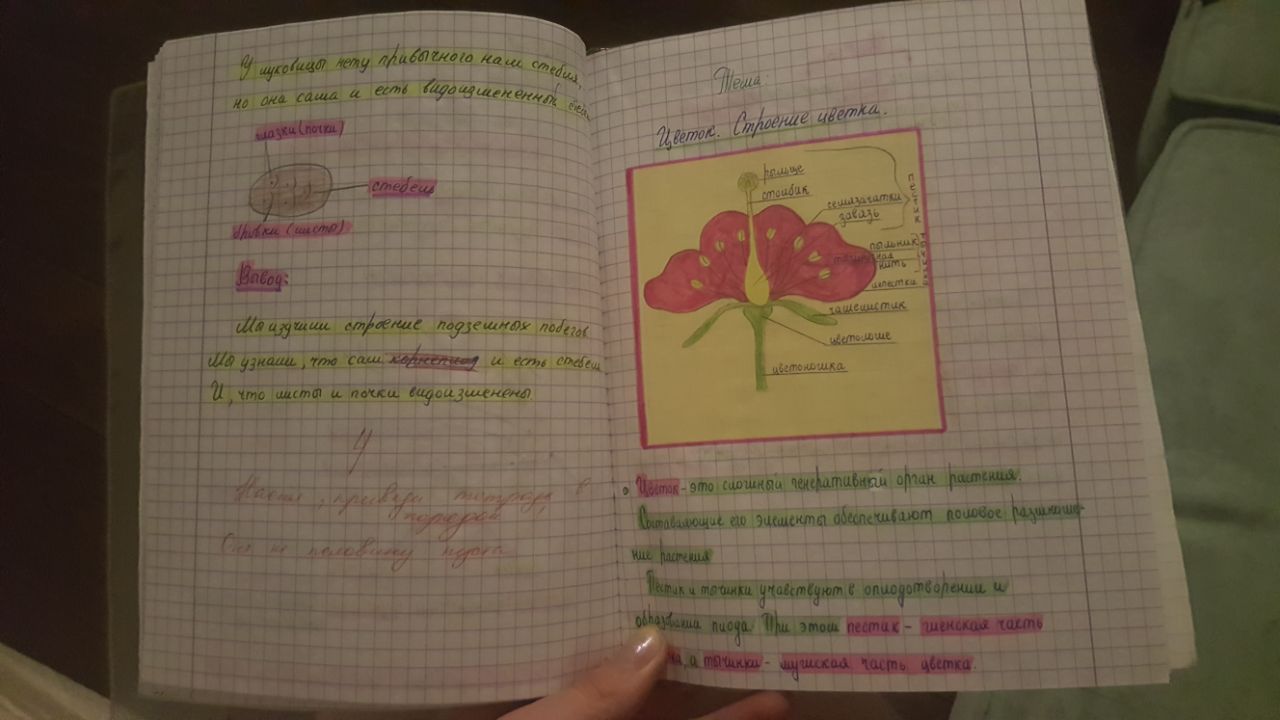 У луковицы нету привычного нам стебля,
но она сама и есть видоизмененный
глазки (почки)
стебель
бровки (листы)
Вывод:
Мы изучили строение подземных побегов
Мы узнали, что сам корнеплод и есть стебель
И, что листы и почки видоизменены
4
Настя, приведи тетрадь в
порядок,
Тема:
Цветок. Строение цветка.
рыльце
столбик
семязачатки
завязь
пестик
пыльник
тычиночная
нить
тычинка
лепестки
чашелистик
цветоложе
цветоножка
Цветок - это сложный генеративный орган растения.
Составляющие его элементы обеспечивают половое размноже-
ние растения
Пестик и тычинки учавствуют в оплодотворении и
образовании плода. При этом пестик - женская часть
а тычинки - мужская часть цветка.